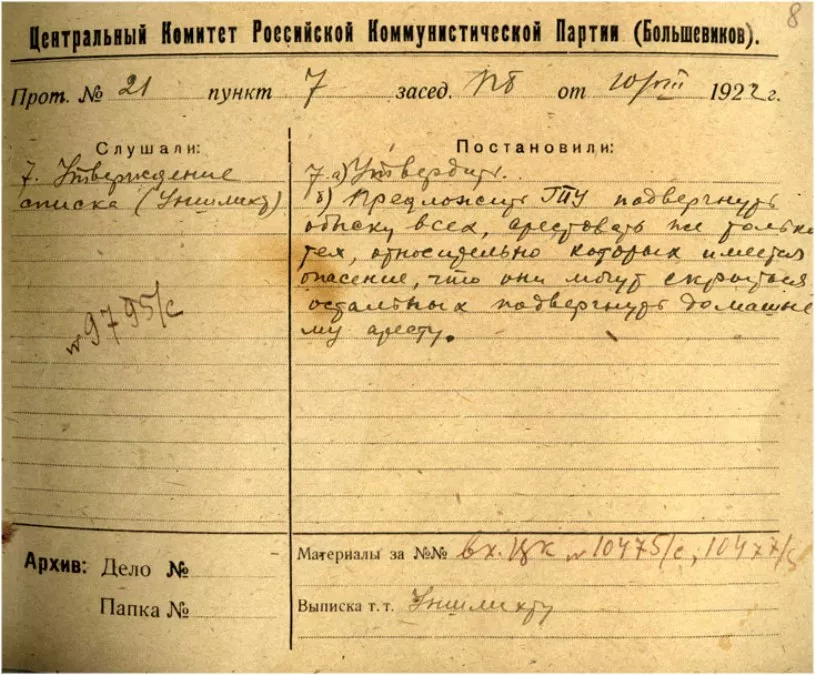 8
Центральный Комитет Российской Коммунистической Партии (Большевиков).
Прот. № 21 пункт 7 засед. ПБ от 10/VIII 1922 г.
Слушали:
7. Утверждение
списка (Уншлихт)
№ 9795/с
Постановили:
7. а) Утвердить.
б) Предложить ГПУ подвергнуть
обыску всех, арестовать же только
тех, относительно которых имеется
опасение, что они могут скрыться
остальных подвергнуть домашне
му аресту.
Архив: Дело №
Папка №
Материалы за №№ вх. ЦК № 10475/с, 10477/с
Выписка т.т. Уншлихту